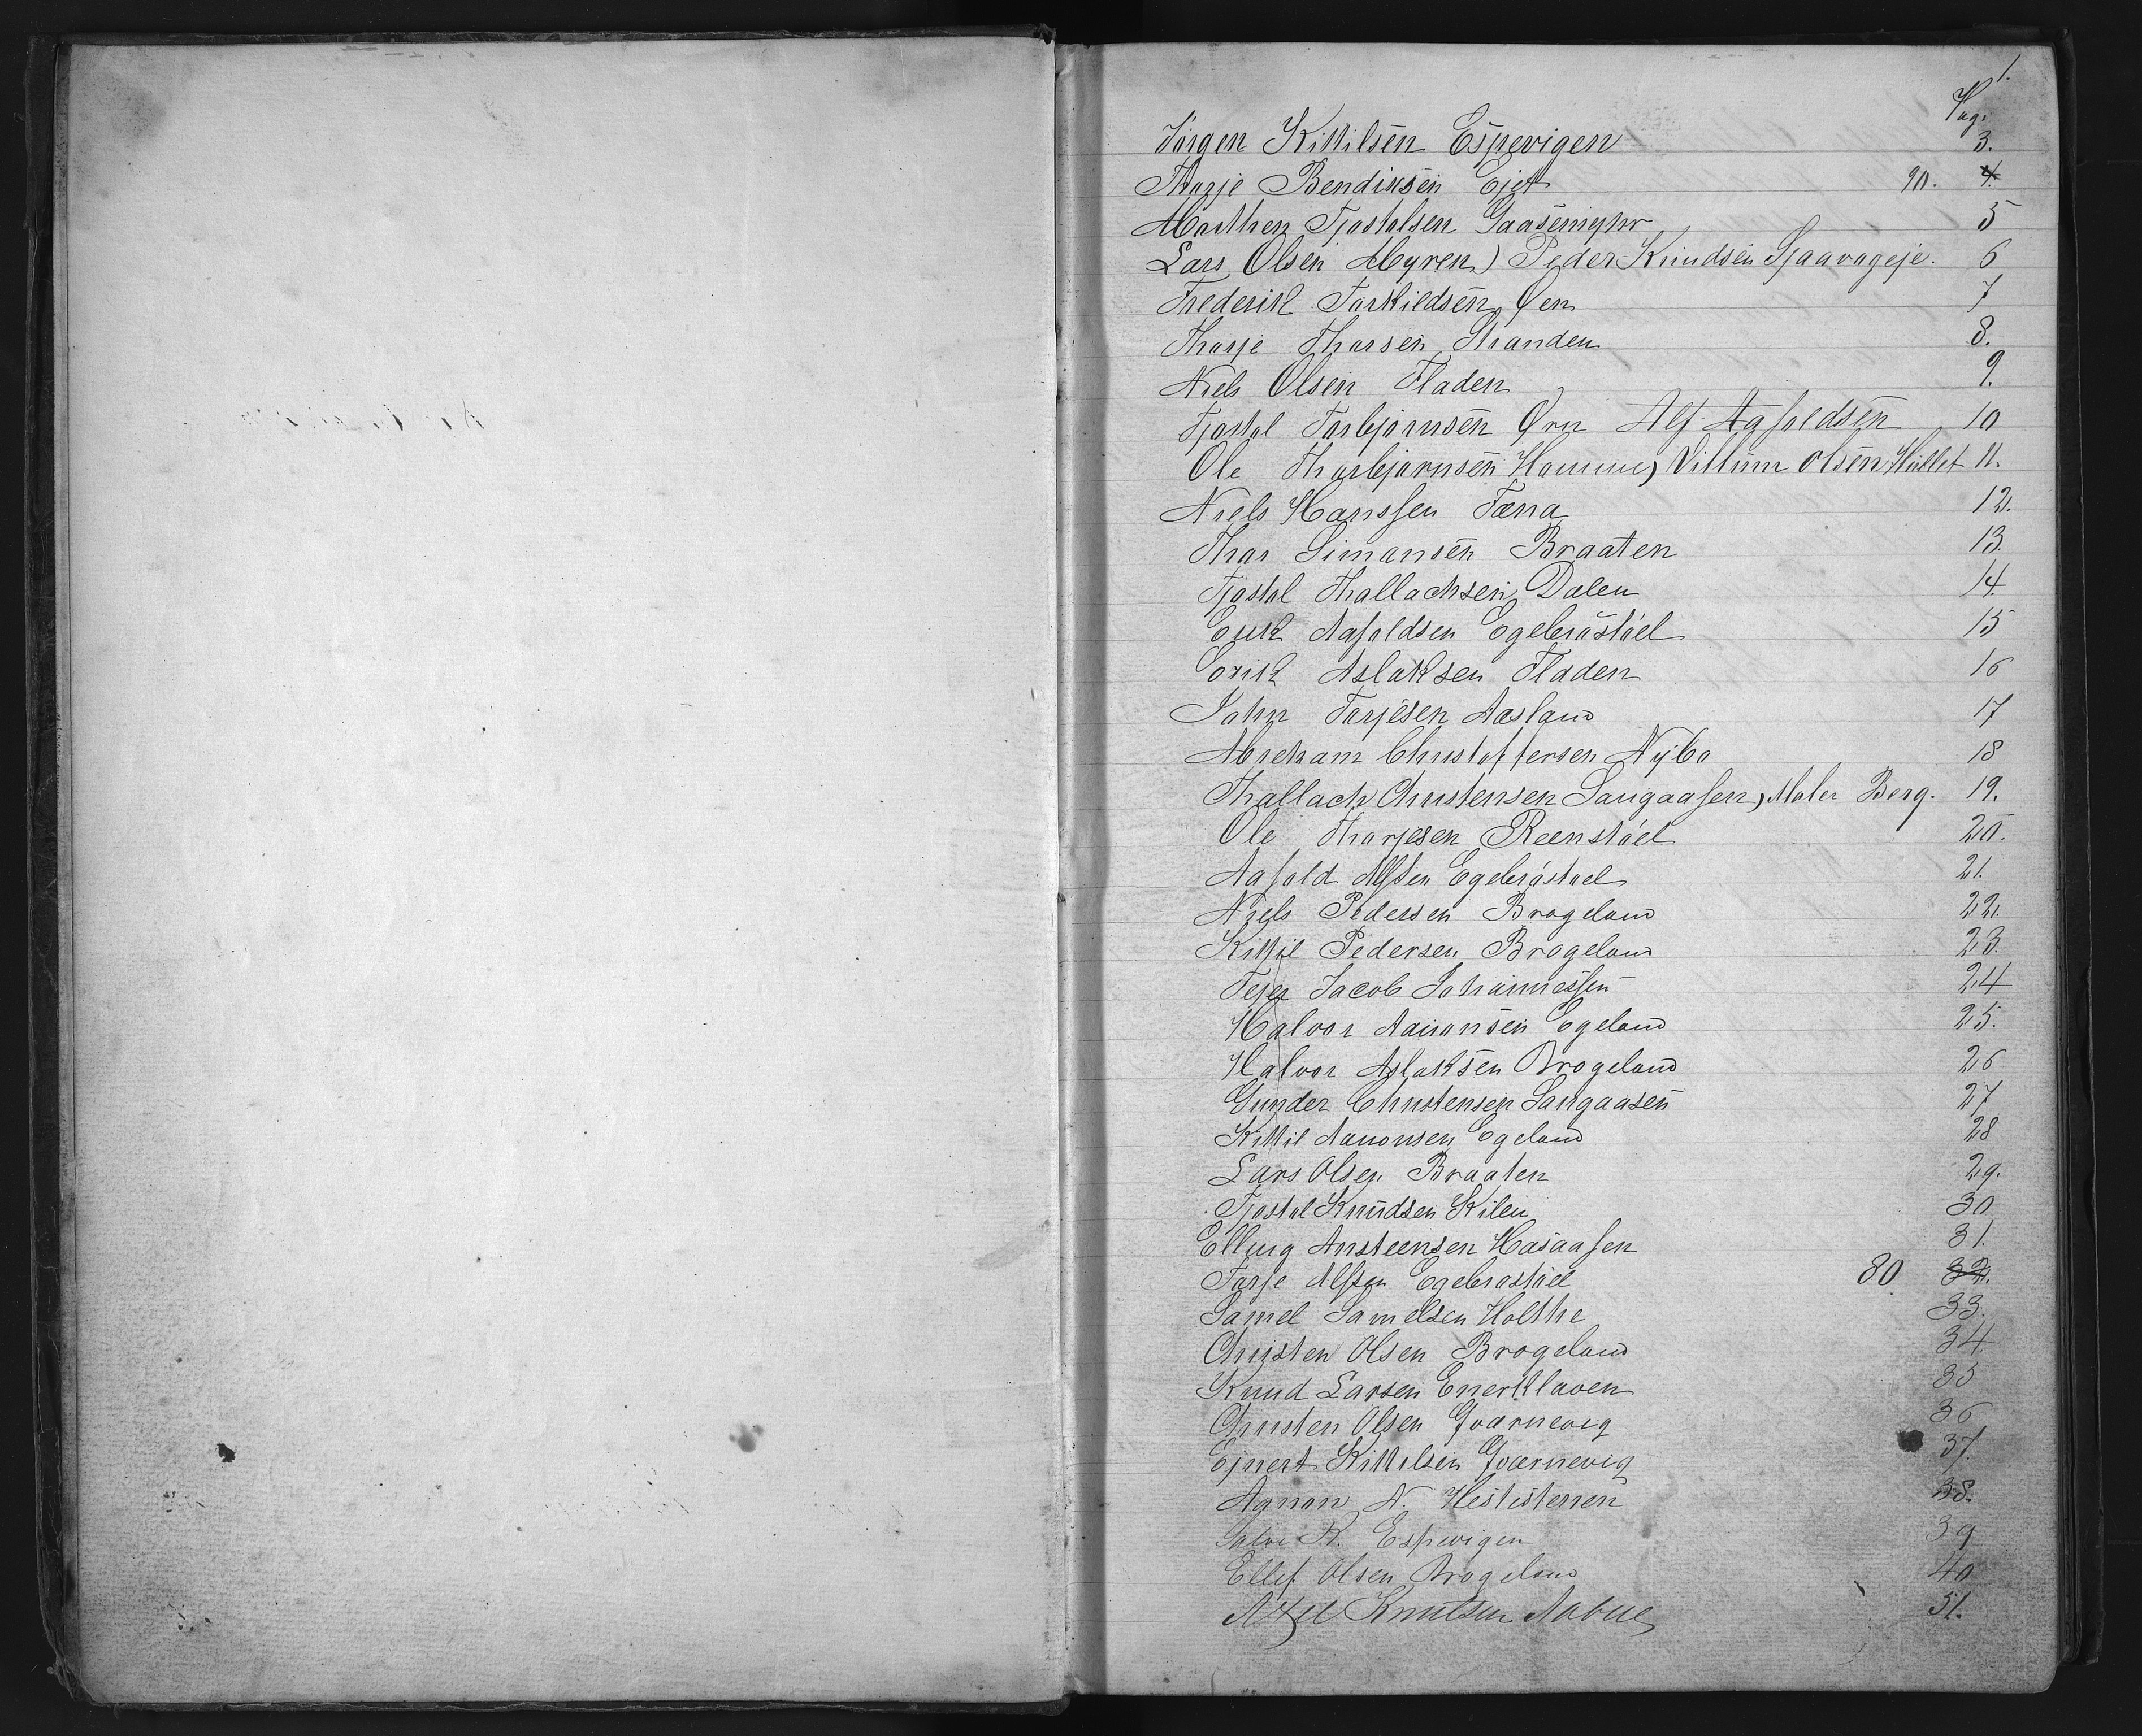 1.
Pag.
Jörgen Kittilsen Espevigen 3.
Thorje Bendiksen Ejet 90. 4.
Morthen Tjostolsen Gaasemyhr 5
Lars Olsen Myren) Peder Knudsen Sjaavageje. 6
Frederik Torkildsen Øen 7
Thorje Thorsen Stranden 8.
Niels Olsen Fladen 9.
Tjostol Torbjørnsen Ørn Alf Aasoldsen 10
Ole Thorbjørnsen Homme, Villum Olsen Hullet 11.
Niels Hanssen Tona 12.
Thor Simonsen Braaten 13.
Tjostol Thollachsen Dalen 14.
Erik Aasoldsen Egebrøstöel 15
Erik Aslaksen Fladen 16
John Torjesen Aasland 17
Abreham Christoffersen Nÿbo 18
Thollach Christensen Langaasen, Maler Berg. 19.
Ole Thorjesen Reenstöel 20.
Aasold Alfsen Egebröstoel 21.
Niels Pedersen Brogeland 22.
Kittil Pedersen Brogeland 23.
Tejer Jacob Johannessen 24
Halvor Aanonsen Egeland 25.
Halvor Aslaksen Brogeland 26
Gunder Christensen Langaasen 27
Kittil Aanonsen Egeland 28
Lars Olsen Braaten 29.
Tjostol Knudsen Kilen 30
Elling Ansteensen Hasaasen 31.
Torje Alfsen Egebrostöel 80. 32.
Samel Samelsen Holthe 33.
Christen Olsen Brogeland 34
Knud Larsen Enerklaven 35
Christen Olsen Gvarnevig 36
Ejnert Kittelsen Gvarnevig 37.
Aanon N. Hestesternen 38.
Salve K. Espevigen 39
Ellef Olsen Brogeland 40
Axel Knutsen Aabue 51.